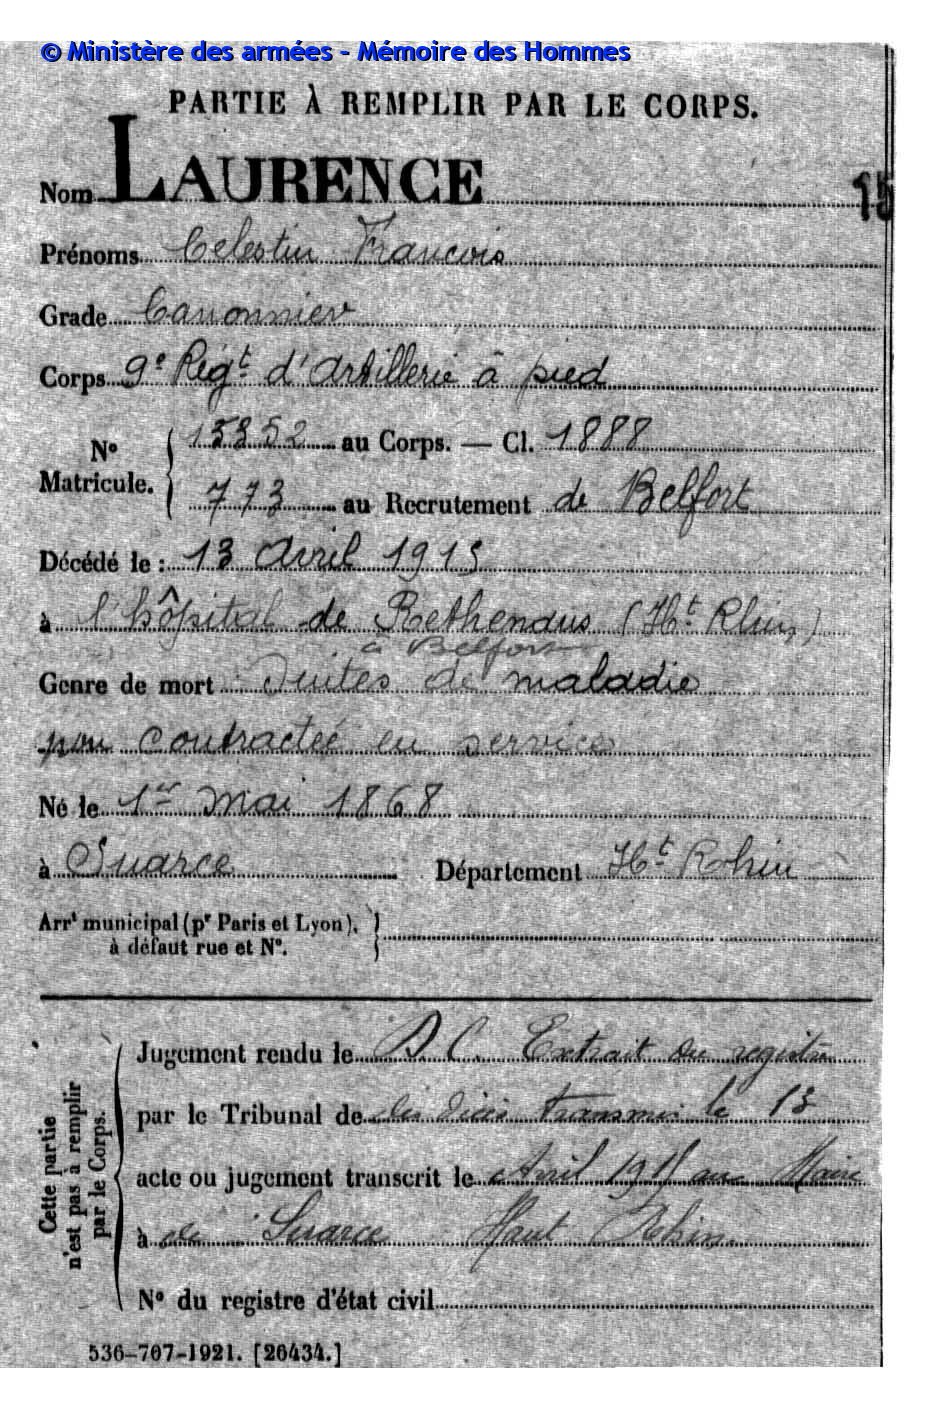 © Ministère des armées - Mémoire des Hommes
PARTIE À REMPLIR PAR LE CORPS.
Nom LAURENCE
15
Prénoms Celestin Francois
Grade Canonnier
Corps 9e Régt d'Artillerie à pied
No Matricule. 15852 au Corps. — Cl. 1888
773 au Recrutement de Belfort
Décédé le : 13 Avril 1915
à l'hôpital de Rethenans (Ht Rhin)
à Belfort
Genre de mort Suites de maladie
contractée en service
Né le 1er Mai 1868
à Suarce Département Ht Rhin
Arrt municipal (pr Paris et Lyon),
à défaut rue et No.
Cette partie n'est pas à remplir par le Corps.
Jugement rendu le D. C. Extrait du registre
par le Tribunal de des décès transmis le 13
acte ou jugement transcrit le Avril 1915 au Maire
à de Suarce Haut Rhin
No du registre d'état civil
536-707-1921. [26434.]